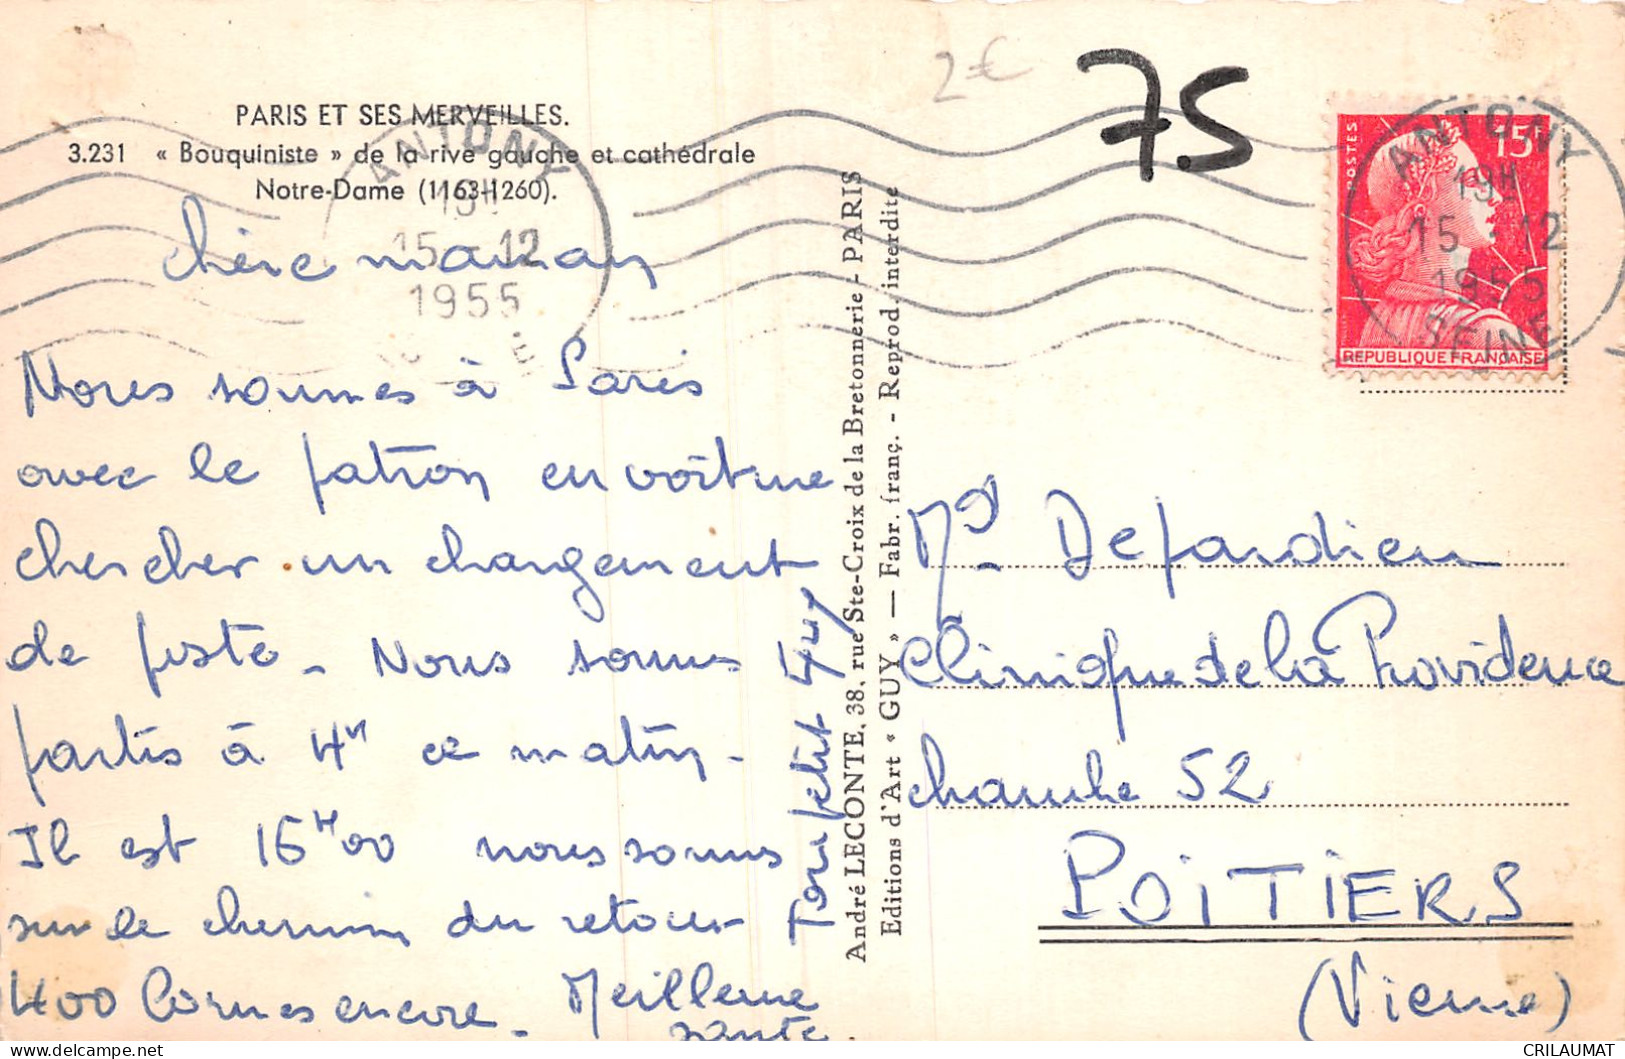 2€
75
PARIS ET SES MERVEILLES.
3.231 « Bouquiniste » de la rive gauche et cathédrale
Notre-Dame (1163-1260).
ANTONY
19H
15-12
1955
POSTES
15F
REPUBLIQUE FRANÇAISE
ANTONY
19H
15-12
1955
SEINE
chère maman
Nous sommes à Paris
avec le patron en voiture
chercher un chargement
de poste. Nous sommes
partis à 4H ce matin.
Il est 16H00 nous sommes
sur le chemin du retour
400 Bornes encore. Meilleure
santé.
Ton petit
André LECONTE, 38, rue Ste-Croix de la Bretonnerie - PARIS
Editions d'Art « GUY » — Fabr. franç. - Reprod. interdite
Md Depardieu
Clinique de la Providence
chambre 52
POITIERS
(Vienne)
CRILAUMAT